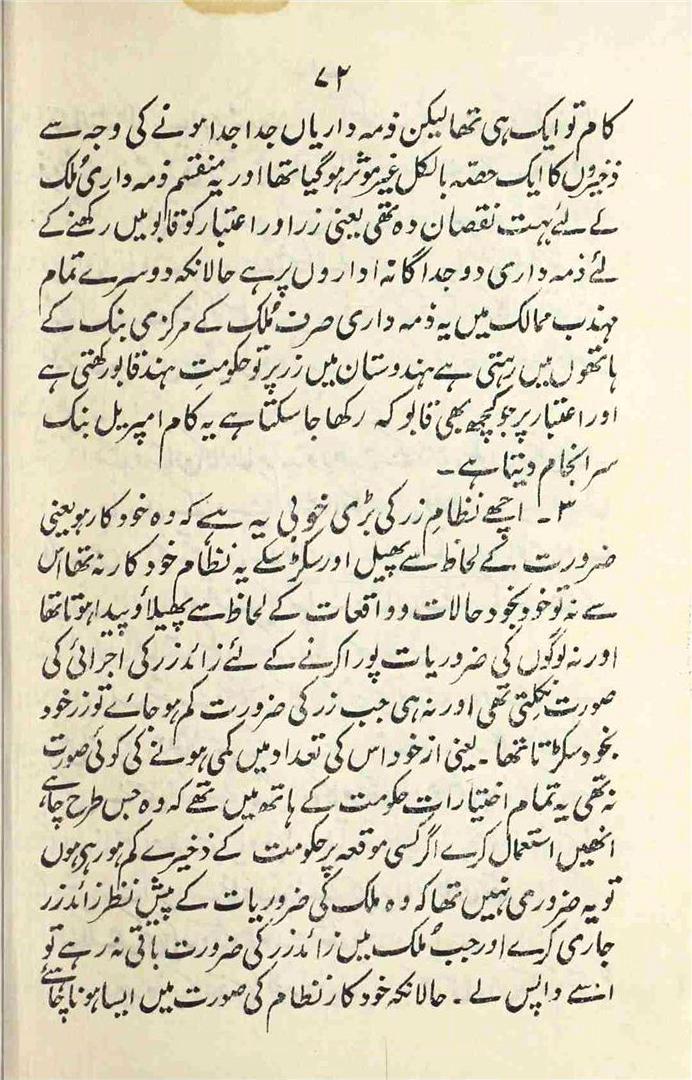 ۷۲
کام تو ایک ہی تھا لیکن ذمہ داریاں جدا جدا ہونے کی وجہ سے
ذخیروں کا ایک حصہ بالکل غیر موثر ہو گیا تھا اور یہ منقسم ذمہ داری مُلک
کے لئے بہت نقصان دہ تھی یعنی زر اور اعتبار کو قابو میں رکھنے کے
لئے ذمہ داری دو جداگانہ اداروں پر ہے حالانکہ دوسرے تمام
مہذب ممالک میں یہ ذمہ داری صرف مُلک کے مرکزی بنک کے
ہاتھوں میں رہتی ہے ہندوستان میں زر پر تو حکومتِ ہند قابو رکھتی ہے
اور اعتبار پر جو کچھ بھی قابو کہ رکھا جا سکتا ہے یہ کام امپریل بنک
سر انجام دیتا ہے۔
۳۔ اچھے نظامِ زر کی بڑی خوبی یہ ہے کہ وہ خود کار ہو یعنی
ضرورت کے لحاظ سے پھیل اور سکڑ سکے یہ نظام خود کار نہ تھا اس
سے نہ تو خود بخود حالات و واقعات کے لحاظ سے پھیلاؤ پیدا ہوتا تھا
اور نہ لوگوں کی ضروریات پورا کرنے کے لئے زائد زر کی اجرائی کی
صورت نکلتی تھی اور نہ ہی جب زر کی ضرورت کم ہو جائے تو زر خود
بخود سکڑتا تھا۔ یعنی از خود اس کی تعداد میں کمی ہونے کی کوئی صورت
نہ تھی یہ تمام اختیارات حکومت کے ہاتھ میں تھے کہ وہ جس طرح چاہے
انھیں استعمال کرے اگر کسی موقعہ پر حکومت کے ذخیرے کم ہو رہی ہوں
تو یہ ضروری نہیں تھا کہ وہ ملک کی ضروریات کے پیشِ نظر زائد زر
جاری کرے اور جب مُلک میں زائد زر کی ضرورت باقی نہ رہے تو
اسے واپس لے۔ حالانکہ خود کار نظام کی صورت میں ایسا ہونا چاہئے